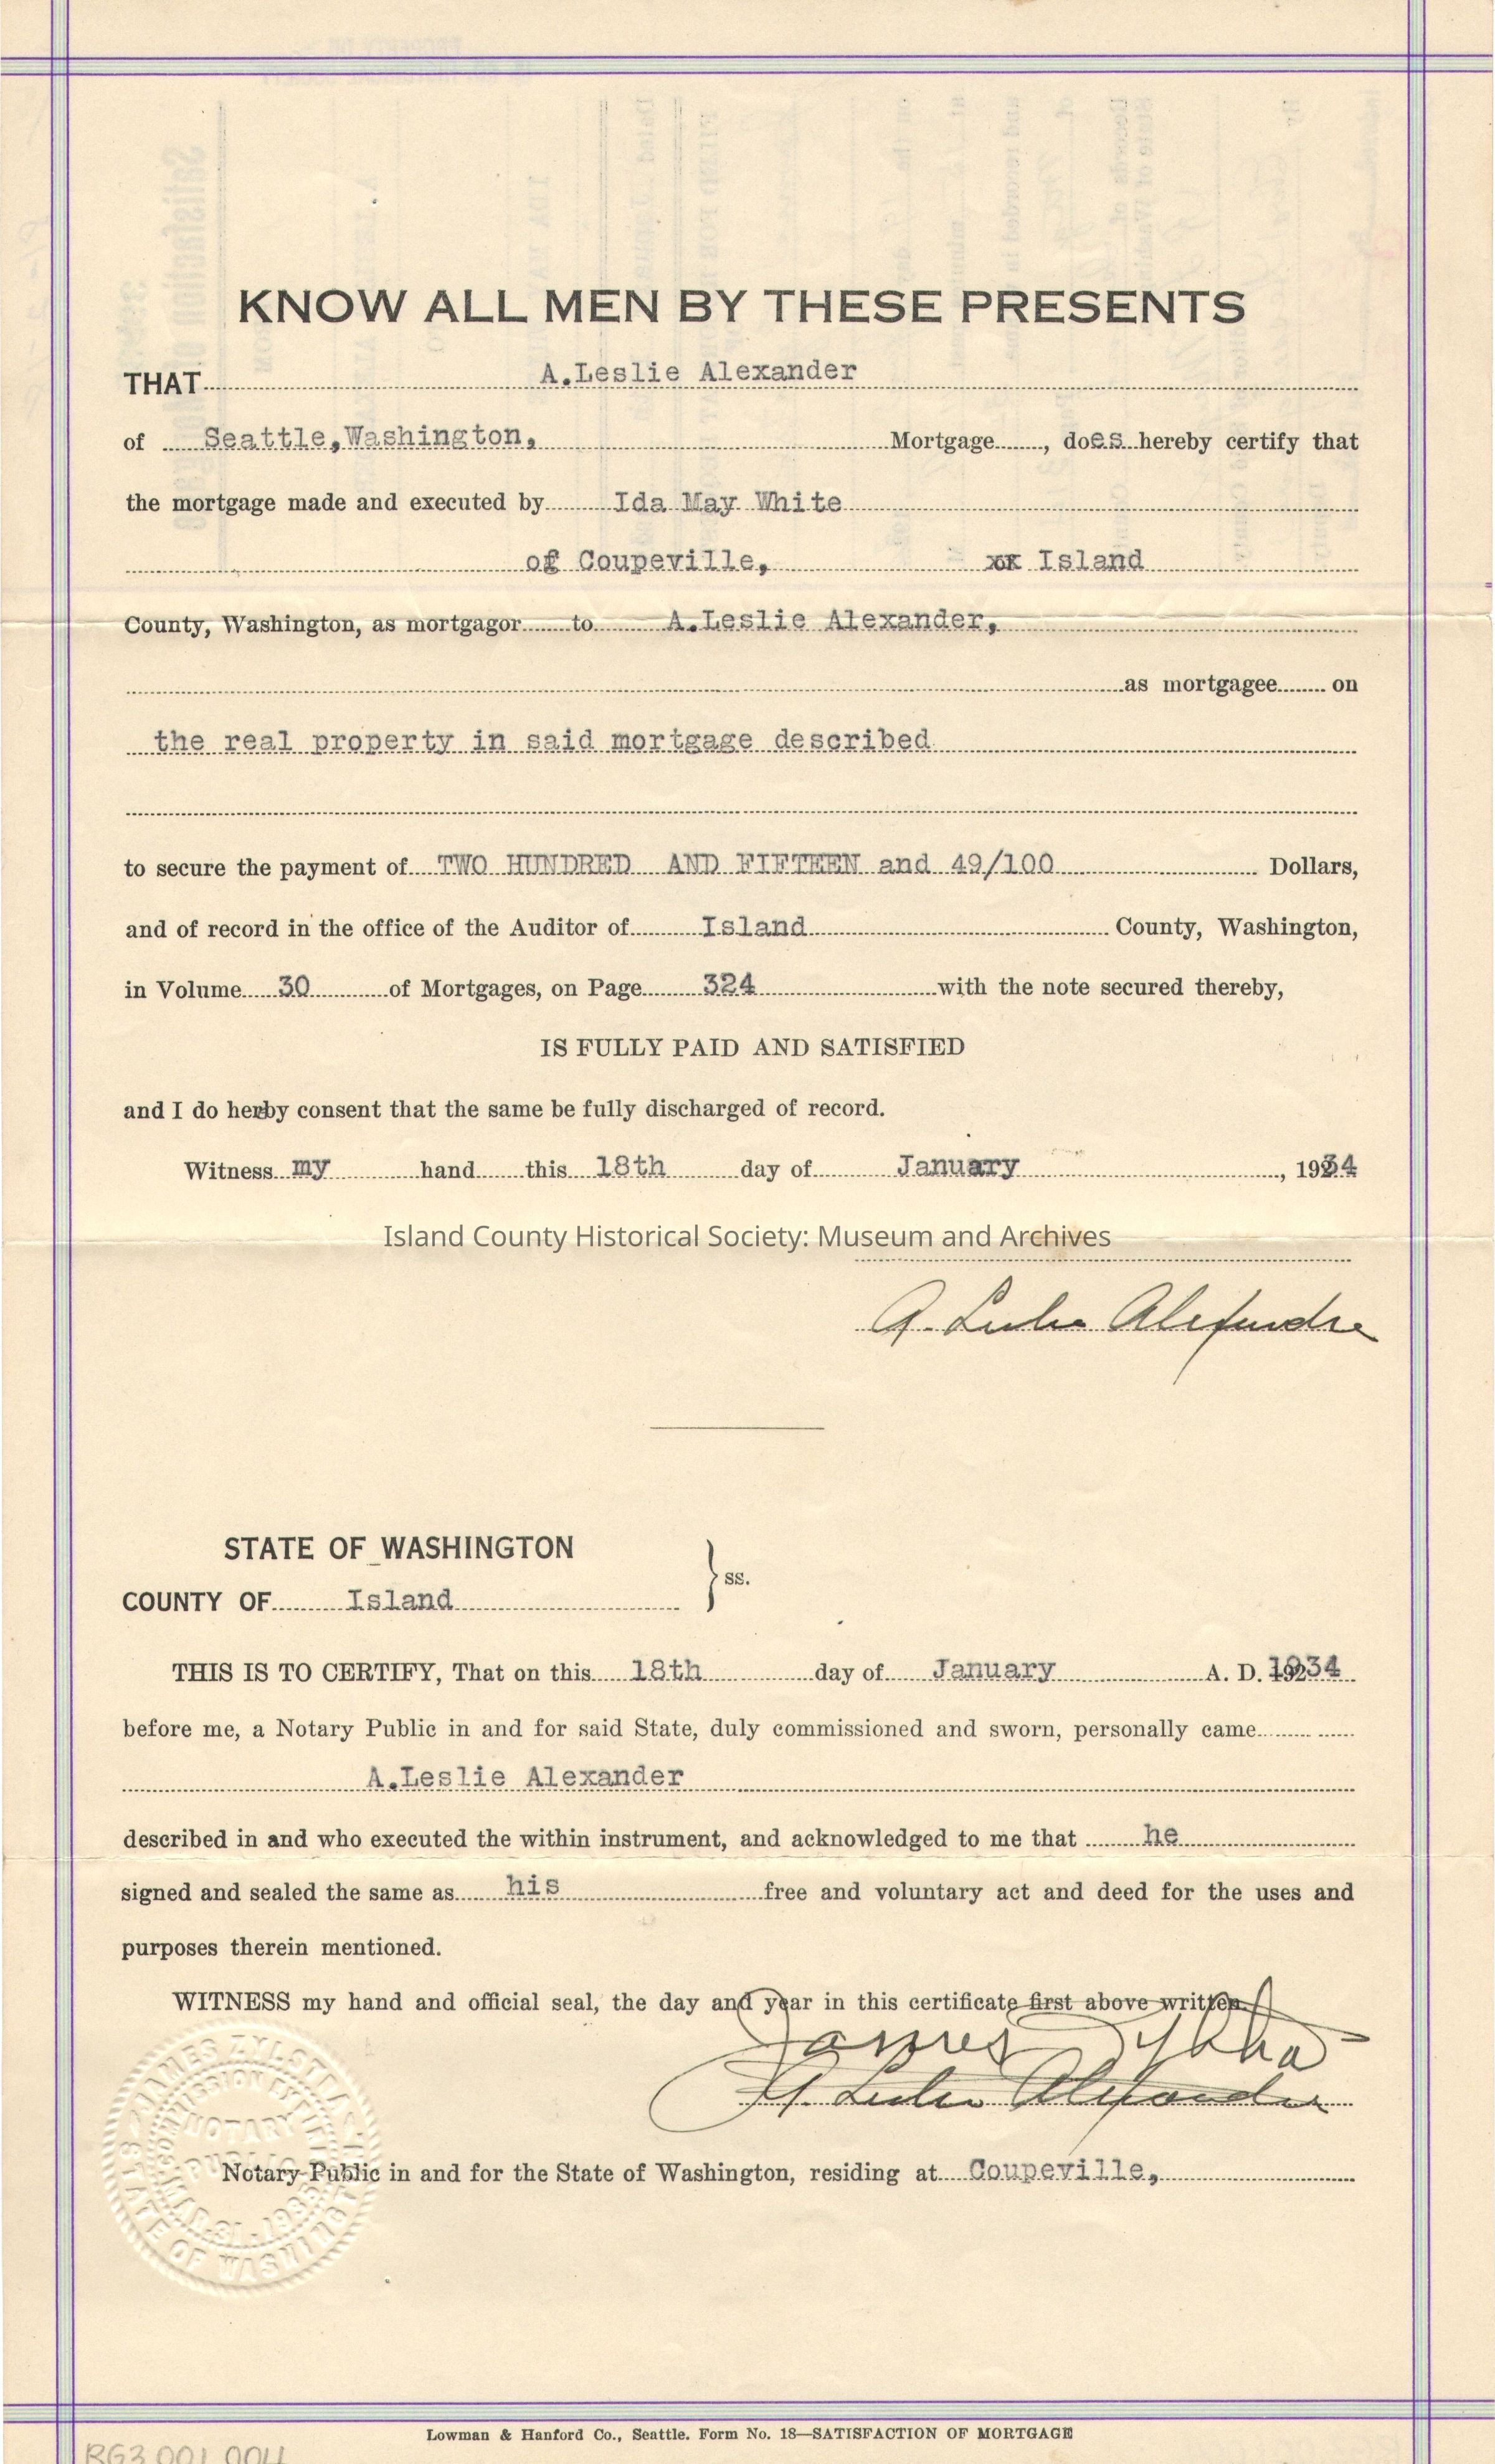 KNOW ALL MEN BY THESE PRESENTS
THAT A.Leslie Alexander
of Seattle,Washington, Mortgage, does hereby certify that
the mortgage made and executed by Ida May White
of Coupeville, xx Island
County, Washington, as mortgagor to A.Leslie Alexander,
as mortgagee on
the real property in said mortgage described
to secure the payment of TWO HUNDRED AND FIFTEEN and 49/100 Dollars,
and of record in the office of the Auditor of Island County, Washington,
in Volume 30 of Mortgages, on Page 324 with the note secured thereby,
IS FULLY PAID AND SATISFIED
and I do herby consent that the same be fully discharged of record.
Witness my hand this 18th day of January, 1934
Island County Historical Society: Museum and Archives
A. Leslie Alexander
STATE OF WASHINGTON
COUNTY OF Island ss.
THIS IS TO CERTIFY, That on this 18th day of January A. D. 1934
before me, a Notary Public in and for said State, duly commissioned and sworn, personally came
A.Leslie Alexander
described in and who executed the within instrument, and acknowledged to me that he
signed and sealed the same as his free and voluntary act and deed for the uses and
purposes therein mentioned.
WITNESS my hand and official seal, the day and year in this certificate first above written.
James Zylstra
A. Leslie Alexander
JAMES ZYLSTRA
COMMISSION EXPIRES
NOTARY
PUBLIC
MAR. 31
STATE OF WASHINGTON
Notary Public in and for the State of Washington, residing at Coupeville,
Lowman & Hanford Co., Seattle. Form No. 18—SATISFACTION OF MORTGAGE
RG3.001.004